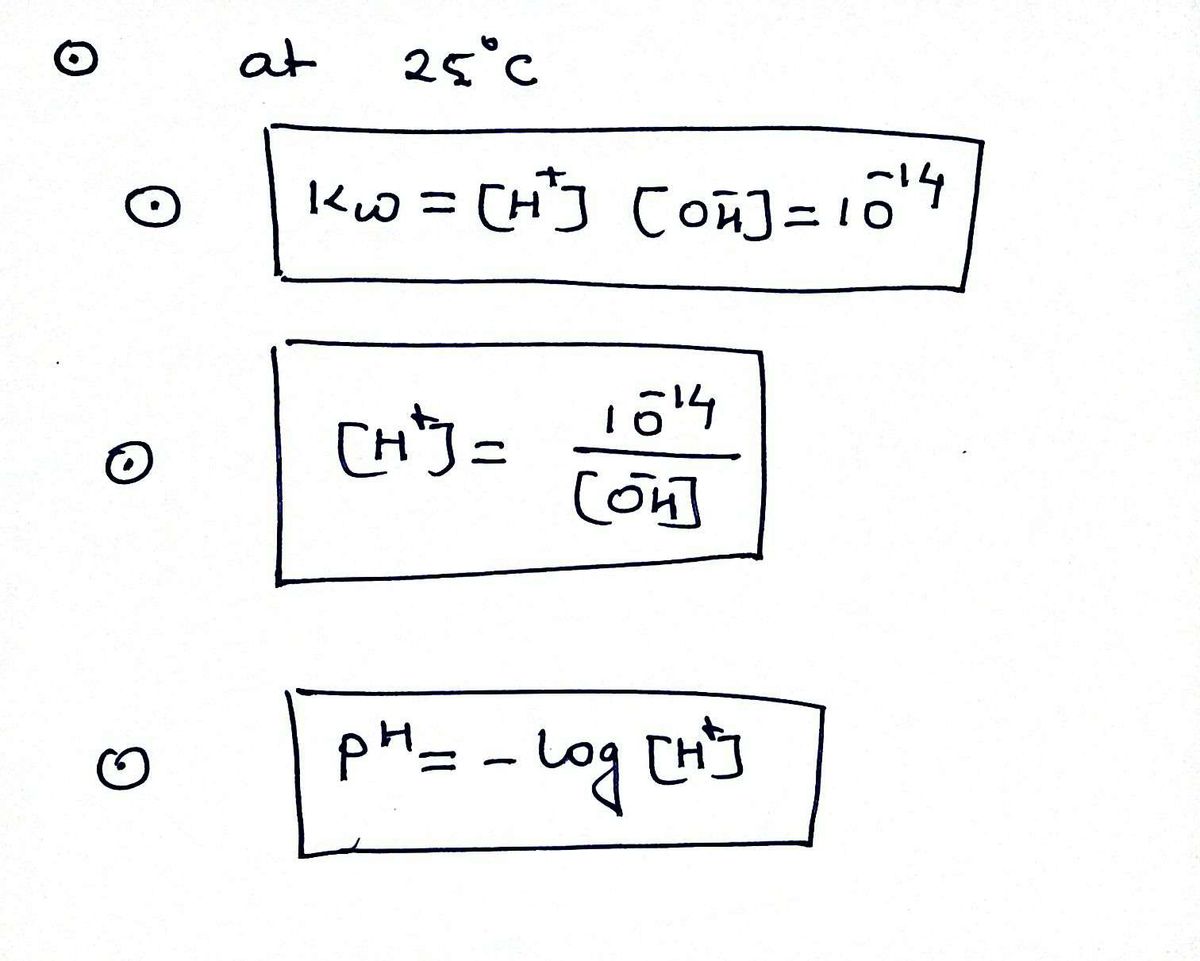 at 25°C
Kw = [H⁺] [OH⁻] = 10⁻¹⁴
[H⁺] = 10⁻¹⁴ / [OH⁻]
pH = - log [H⁺]